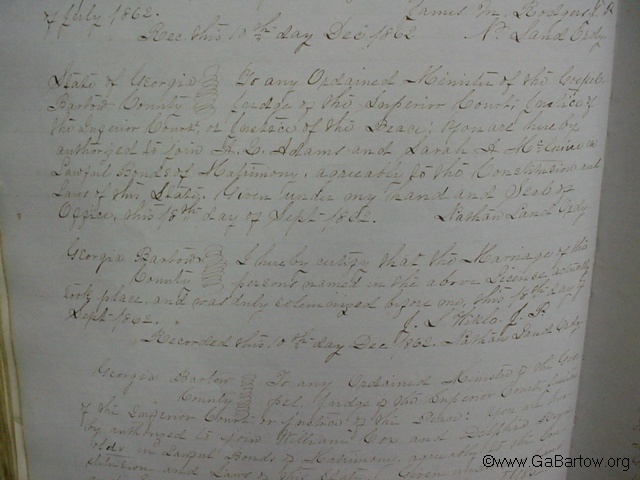 of July 1862. James M. Rodgers J. P.
Rec. this 10th day Dec. 1862 N. Land Ordy
State of Georgia To any Ordained Minister of the Gospel
Bartow County Judge of the Superior Court, Justice of
the Inferior Court, or Justice of the Peace: You are hereby
authorized to join Adams and Sarah A. in
Lawful Bonds of Matrimony, agreeably to the Constitution and
Laws of this State. Given under my hand and Seal of
Office, this 18th day of Sept 1862. Nathan Land Ordy
Georgia Bartow I hereby certify that the Marriage of the
County persons named in the above License, actually
took place, and was duly solemnized before me, this 18th day of
Sept 1862. J. L. J. P.
Recorded this 10th day Dec. 1862. Nathan Land Ordy
Georgia Bartow To any Ordained Minister of the Gos-
County pel, Judge of the Superior Court, Justice
of the Inferior Court or Justice of the Peace: You are her
by authorized to join William Cox and
in Lawful Bonds of Matrimony, agreeably to the Con
stitution and Laws of this State. Given
©www.GaBartow.org